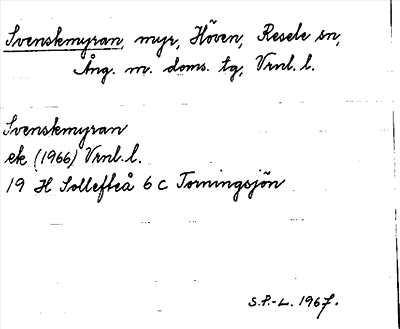 Svenskmyran, myr, Höven, Resele sn,
Ång. m. doms. tg, Vrnl. l.
Svenskmyran
ek (1966) Vrnl. l.
19 H Sollefteå 6 c Torningsjön
S.P.-L. 1967.